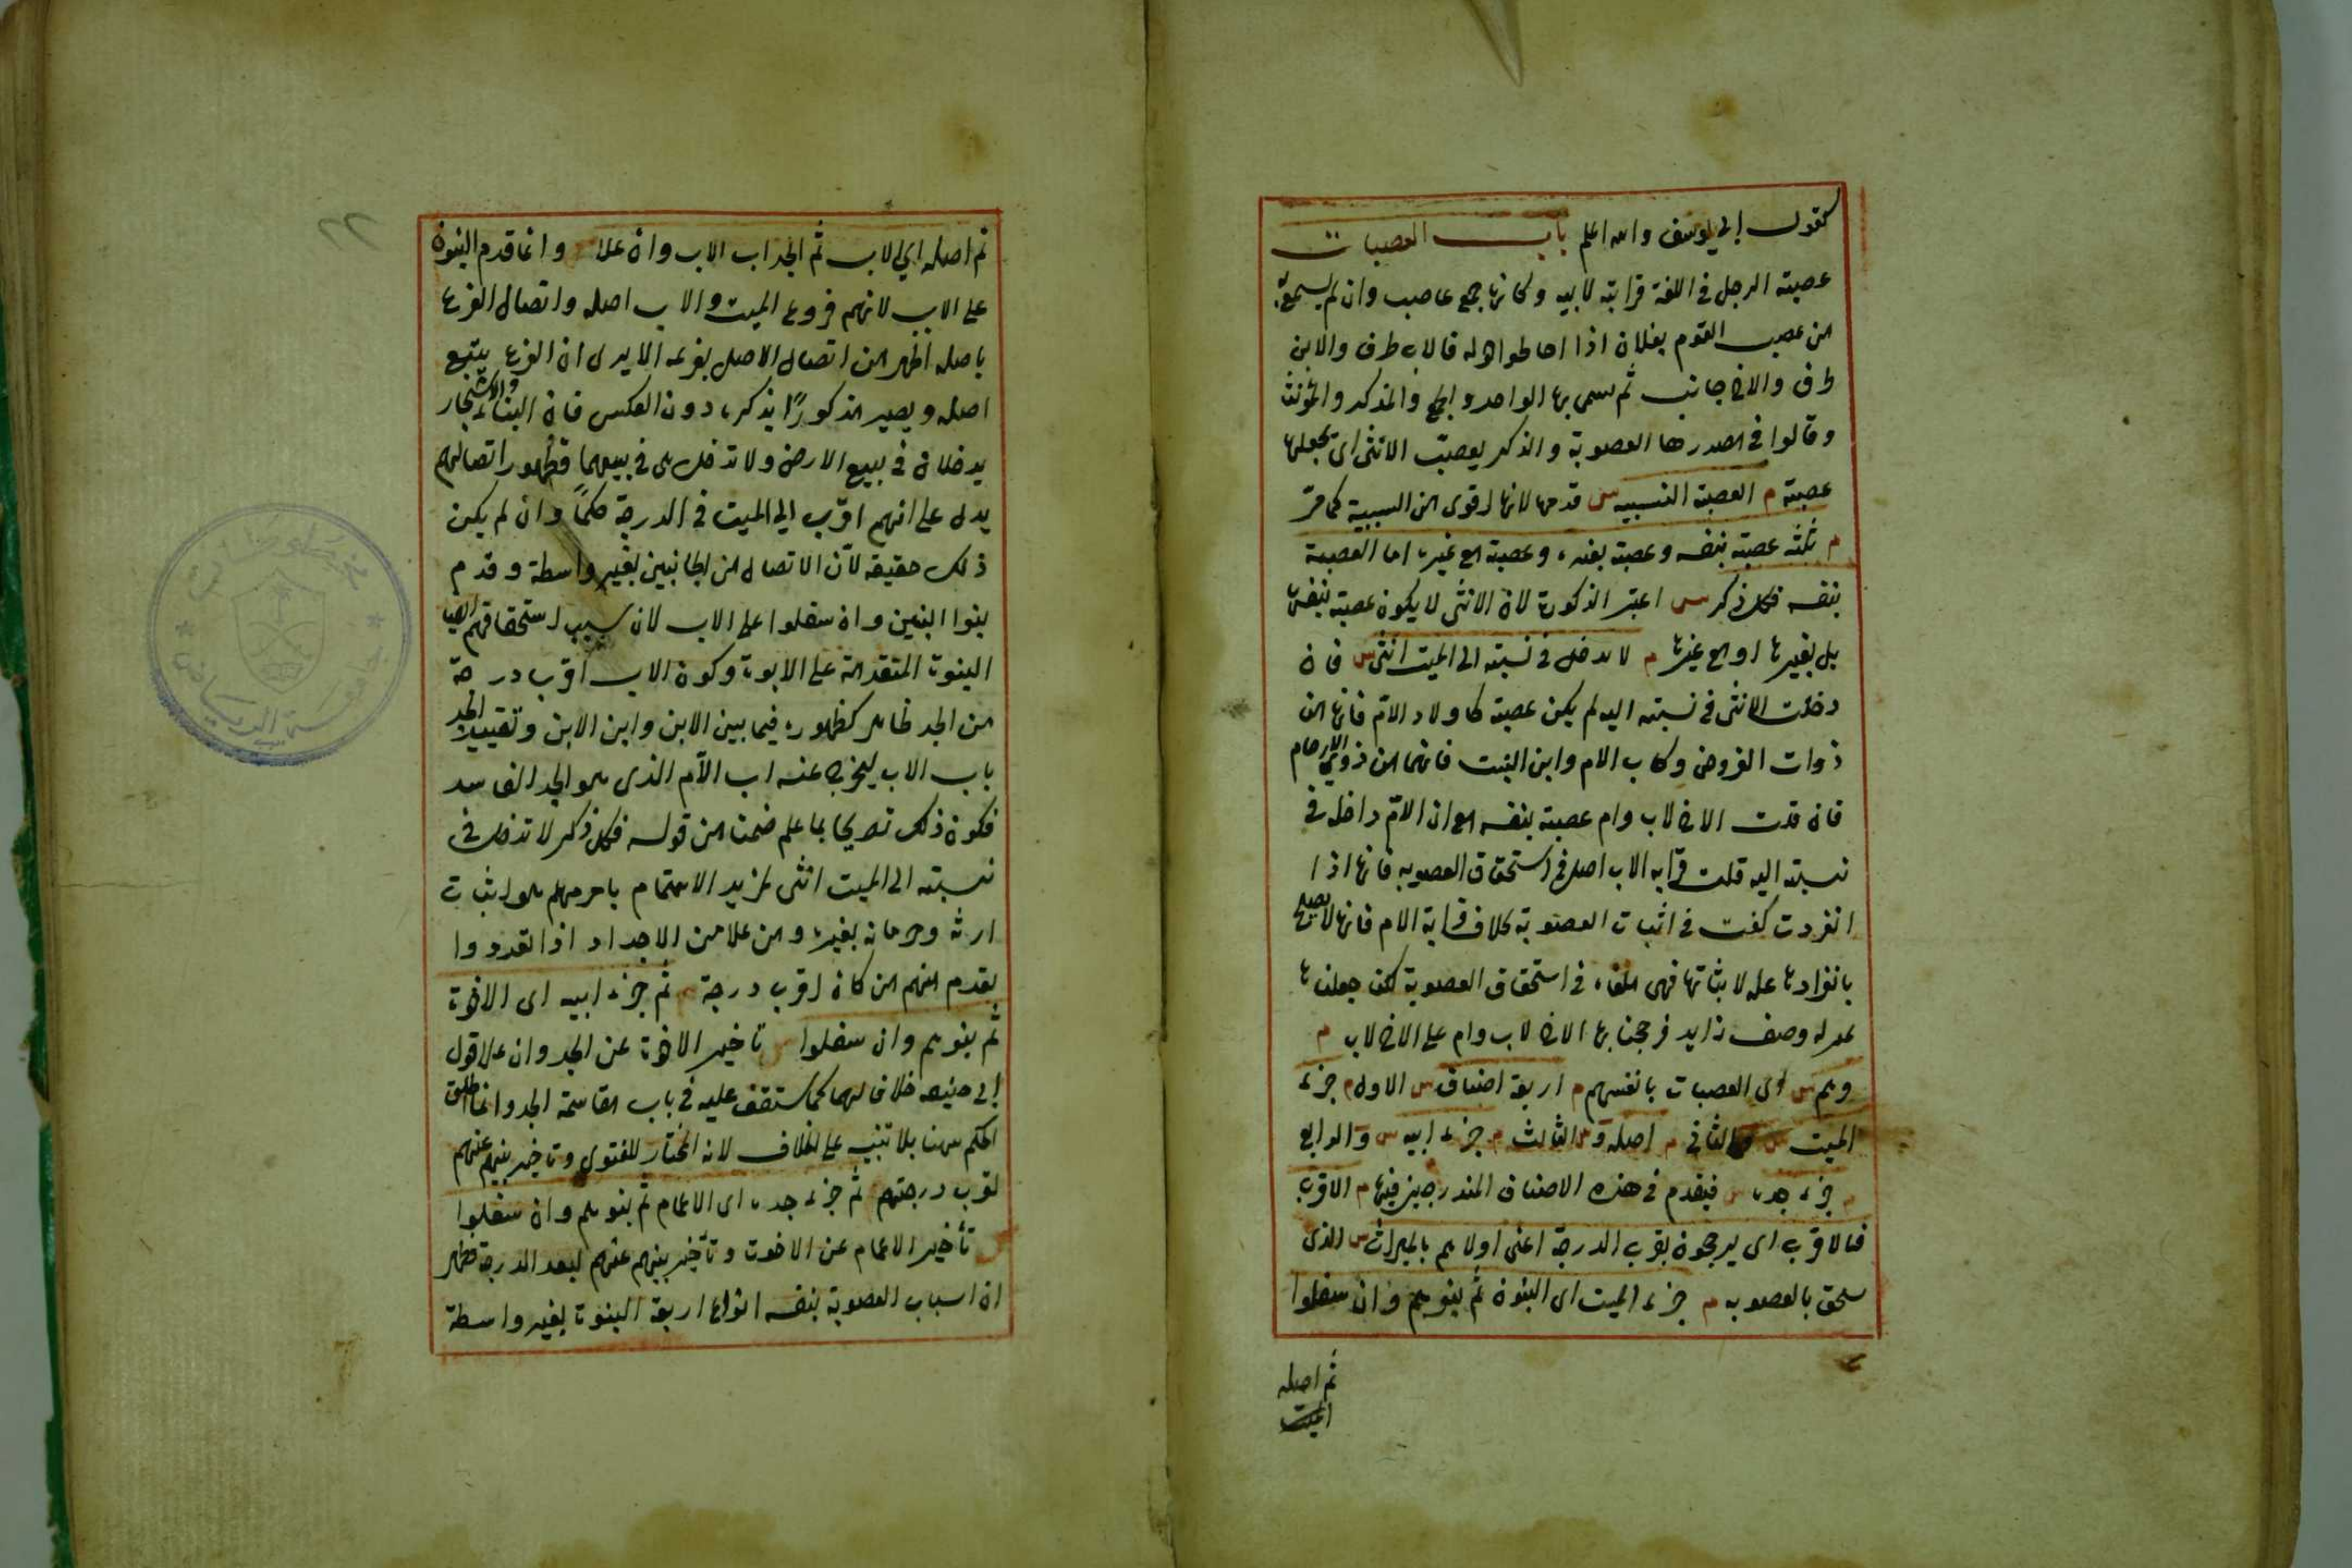 كقول ابي يوسف والله اعلم باب العصبات
عصبة الرجل في اللغة قرابته لابيه وكانها جمع عاصب وان لم يسمع به
من عصب القوم بفلان اذا احاطوا به فالاب طرف والابن
طرف والاخ جانب ثم سمى بها الواحد والجمع والمذكر والمؤنث
وقالوا في مصدرها العصوبة والذكر يعصب الانثى اى يجعلها
عصبة م العصبة النسبيه س قدمها لانها اقوى من السببية كما مرّ
م ثلثه عصبة بنفسه وعصبة بغيره وعصبة مع غيره اما العصبة
بنفسه فكل ذكر س اعتبر الذكورة لان الانثى لا يكون عصبة بنفسها
بل بغيرها او مع غيرها م لا يدخل في نسبته الى الميت انثى س فان
دخلت الانثى في نسبته اليه لم يكن عصبة كاولاد الام فانها من
ذوات الفروض وكاب الام وابن البنت فانهما من ذوي الارحام
فان قلت الاخ لاب وام عصبة بنفسه مع ان الام داخل في
نسبته اليه قلت قرابه الاب اصل في استحقاق العصوبه فانها اذا
انفردت كفت في اثبات العصوبة بخلاف قرابة الام فانها لا يصلح
بانفرادها علة لاثباتها فهى ملغاة في استحقاق العصوبة لكن جعلناها
بمنزله وصف زايد فرجحنا بها الاخ لاب وام على الاخ لاب م
وهم س اى العصبات بانفسهم م اربعة اصناف س الاول م جزء
الميت س والثاني م اصله س و الثالث م جزء ابيه س والرابع
م جزء جده س فيقدم في هذه الاصناف المندرجين فيها م الاقرب
فالاقرب اى يرجحون بقرب الدرجة اعنى اولاهم بالميراث س الذى
يستحق بالعصوبه م جزء الميت اى البنون ثم بنوهم وان سفلوا
ثم اصله
الميت
٢٢
ثم اصله اي الاب ثم الجد اب الاب وان علا وانما قدم البنون
على الاب لانهم فروع الميت والاب اصله واتصال الفرع
باصله اظهر من اتصال الاصل بفرعه الا يرى ان الفرع يتبع
اصله ويصير مذكورًا بذكره دون العكس فان البناء والاشجار
يدخلان في بيع الارض ولا تدخل هى في بيعهما فظهور اتصالهم
يدل على انهم اقرب الي الميت في الدرجة حكمًا وان لم يكن
ذلك حقيقه لان الاتصال من الجانبين بغير واسطة وقدم
بنوا البنين وان سفلوا على الاب لان سبب استحقاقهم ايضا
البنوة المتقدمة على الابوة وكون الاب اقرب درجة
من الجد ظاهر كظهوره فيما بين الابن وابن الابن وتقييد الجد
باب الاب ليخرج عنه اب الام الذى هو الجد الفاسد
فكون ذلك تصريحا بما علم ضمنا من قوله فكل ذكر لا تدخل في
نسبته الى الميت انثى لمزيد الاهتمام باحرمهم هو اثبات
ارثه وحرمانه بغيره ومن علا من الاجداد اذا تعددوا
يقدم منهم من كان اقرب درجة م ثم جزء ابيه اى الاخوة
ثم بنوهم وان سفلوا س تاخير الاخوة عن الجد وان علا قول
ابي حنيفه خلافا لهما كما ستقف عليه في باب مقاسمة الجد وانما اطلق
الحكم هنا بلا تنبيه على الخلاف لانه المختار للفتوى وتاخير بنيهم عنهم
لقرب درجتهم ثم جزء جده اى الاعمام ثم بنوهم وان سفلوا
س تأخير الاعمام عن الاخوة وتأخير بنيهم عنهم لبعد الدرجة فظهر
ان اسباب العصوبة بنفسه انواع اربعة البنوة بغير واسطة